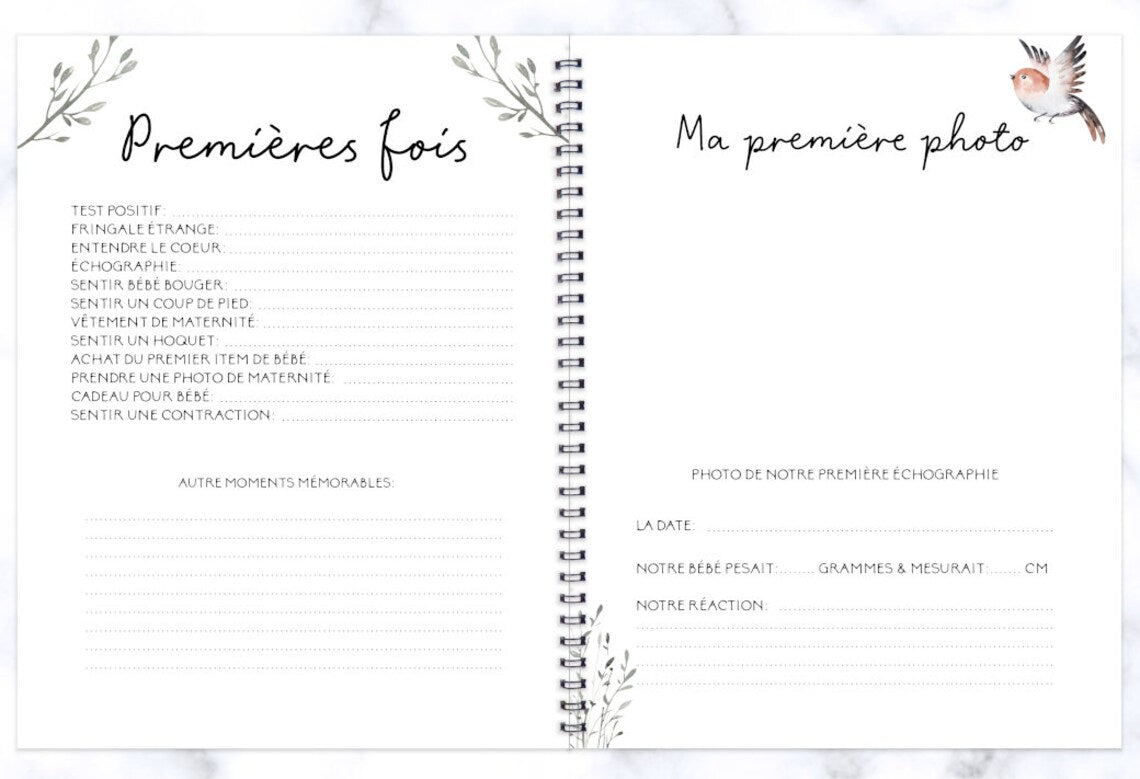 Premières fois
TEST POSITIF:
FRINGALE ÉTRANGE:
ENTENDRE LE COEUR:
ÉCHOGRAPHIE:
SENTIR BÉBÉ BOUGER:
SENTIR UN COUP DE PIED:
VÊTEMENT DE MATERNITÉ:
SENTIR UN HOQUET:
ACHAT DU PREMIER ITEM DE BÉBÉ:
PRENDRE UNE PHOTO DE MATERNITÉ:
CADEAU POUR BÉBÉ:
SENTIR UNE CONTRACTION:
AUTRE MOMENTS MÉMORABLES:
Ma première photo
PHOTO DE NOTRE PREMIÈRE ÉCHOGRAPHIE
LA DATE:
NOTRE BÉBÉ PESAIT:........ GRAMMES & MESURAIT:....... CM
NOTRE RÉACTION: